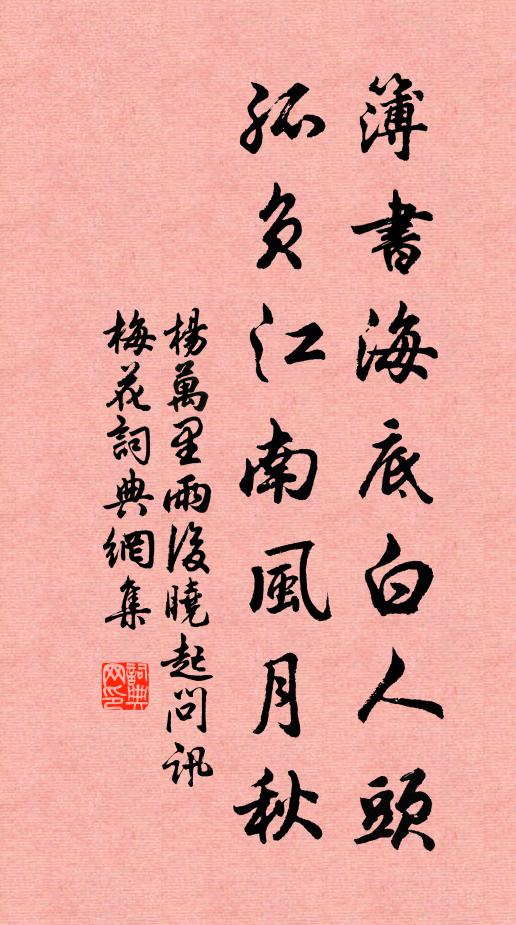 簿書海底白人頭
孤負江南風月秋
楊萬里雨後曉起問訊
梅花詞典網集
詞典
网印